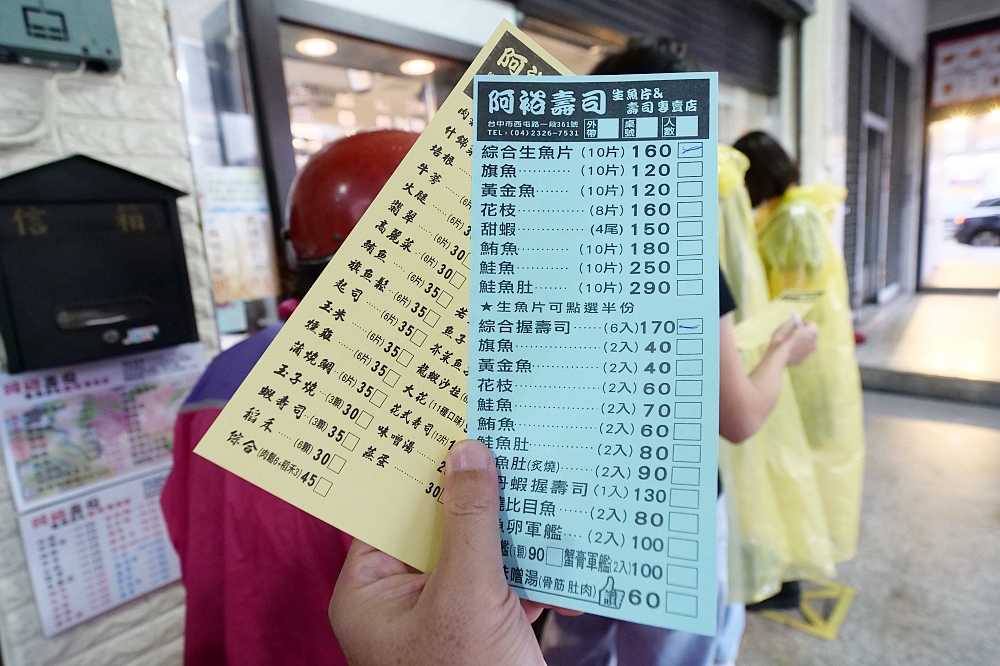 阿裕壽司 生魚片&
壽司專賣店
台中市西屯路一段361號
TEL:(04)2326-7531
外帶 桌號 人數
綜合生魚片 (10片) 160
旗魚 (10片) 120
黃金魚 (10片) 120
花枝 (8片) 160
甜蝦 (4尾) 150
鮪魚 (10片) 180
鮭魚 (10片) 250
鮭魚肚 (10片) 290
★生魚片可點選半份
綜合握壽司 (6入) 170
旗魚 (2入) 40
黃金魚 (2入) 40
花枝 (2入) 60
鮭魚 (2入) 70
鮪魚 (2入) 60
鮭魚肚 (2入) 80
魚肚(炙燒) (2入) 90
丹蝦握壽司 (1入) 130
比目魚 (2入) 80
魚卵軍艦 (2入) 100
艦(1顆) 90 蟹膏軍艦(2入) 100
味噌湯(骨筋 肚肉) 讚 60
阿裕
什錦
培根
牛蒡 (6片)
火腿 (6片)
翡翠 (6片) 30
高麗菜 (6片) 30
鮪魚 (6片) 35
旗魚鬆 (6片) 35
起司 (6片) 35
玉米 (6片) 35
燻雞 (6片) 35
蒲燒鯛 (6片) 35
玉子燒 (3顆) 30
蝦壽司 (3顆) 35
稻禾 (6顆) 30
綜合(肉鬆6+稻禾3) 45
芥茉魚子
龍蝦沙拉
大花(1種口味)
花式壽司(12片)
味噌湯
蒸蛋 30
信箱